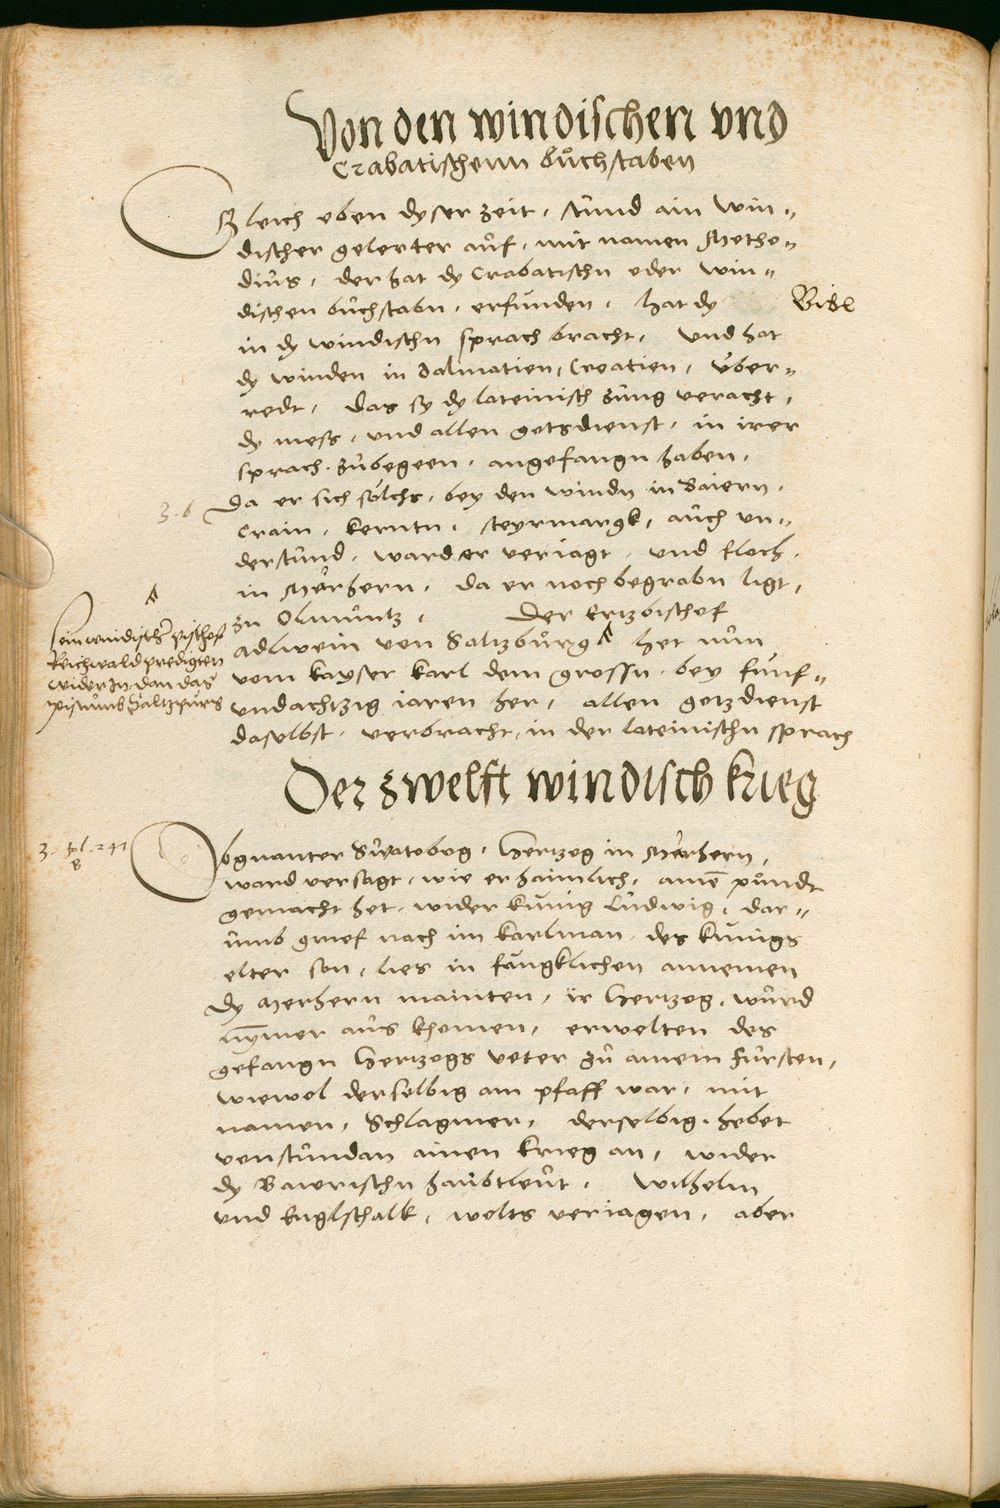 Von den windischen vnd
Crabatischenn bůchstaben
Gleich eben dyser zeit, stůnd ain win-
discher gelerter aůf, mit namen Metho-
diůs, der hat dy Crabatischn oder win-
dischen bůchstabn, erfunden, hat dy Bibl
in dy windischn sprach bracht, vnd hat
dy winden in Dalmatien, Croatien, v̈ber-
redt, das sy dy lateinisch zůng veracht,
dy mess, vnd allen gotsdienst, in irer
sprach zůbegeen, angefangn haben,
3. 6
Da er sich sölchs, bey den windn in Baiern,
Crain, kerntn, steyrmargk, aůch vn-
derstůnd, ward er veriagt, vnd floch
in Märhern, da er noch begrabn ligt,
zu Olmůntz, Der Ertzbischof
Adlwein von Saltzbůrg A het nůn
vom kayser karl dem grossn bey fünf-
vndachtzig iaren her, allen gotzdienst
daselbst, verbracht, in der lateinischn sprach
A
sein windischer bischof
Reichwald predigten
wider In, dan das
Pistůmb Saltzpurg
Der zwelft windisch krieg
3. fol. 241
B
Obgnanter Sůatobog, Hertzog in Märhern,
ward versagt, wie er haimlich, ainē půndt
gemacht het, wider kůnig Lůdwig, dar-
ůmb grief nach im karlman, des kůnigs
elter son, lies in fängklichen annemen
Dy Merhern mainten, ir Hertzog, wůrd
nymmer aůs khomen, erwelten des
gefangn Hertzogs veter zů ainem fürsten,
wiewol derselbig ain pfaff war, mit
namen, Schlagmer, derselbig, hebet
vonstůndan ainen krieg an, wider
dy Bairischn haůbtleůt, Wilhelm
vnd Englschalk, wolts veriagen, aber